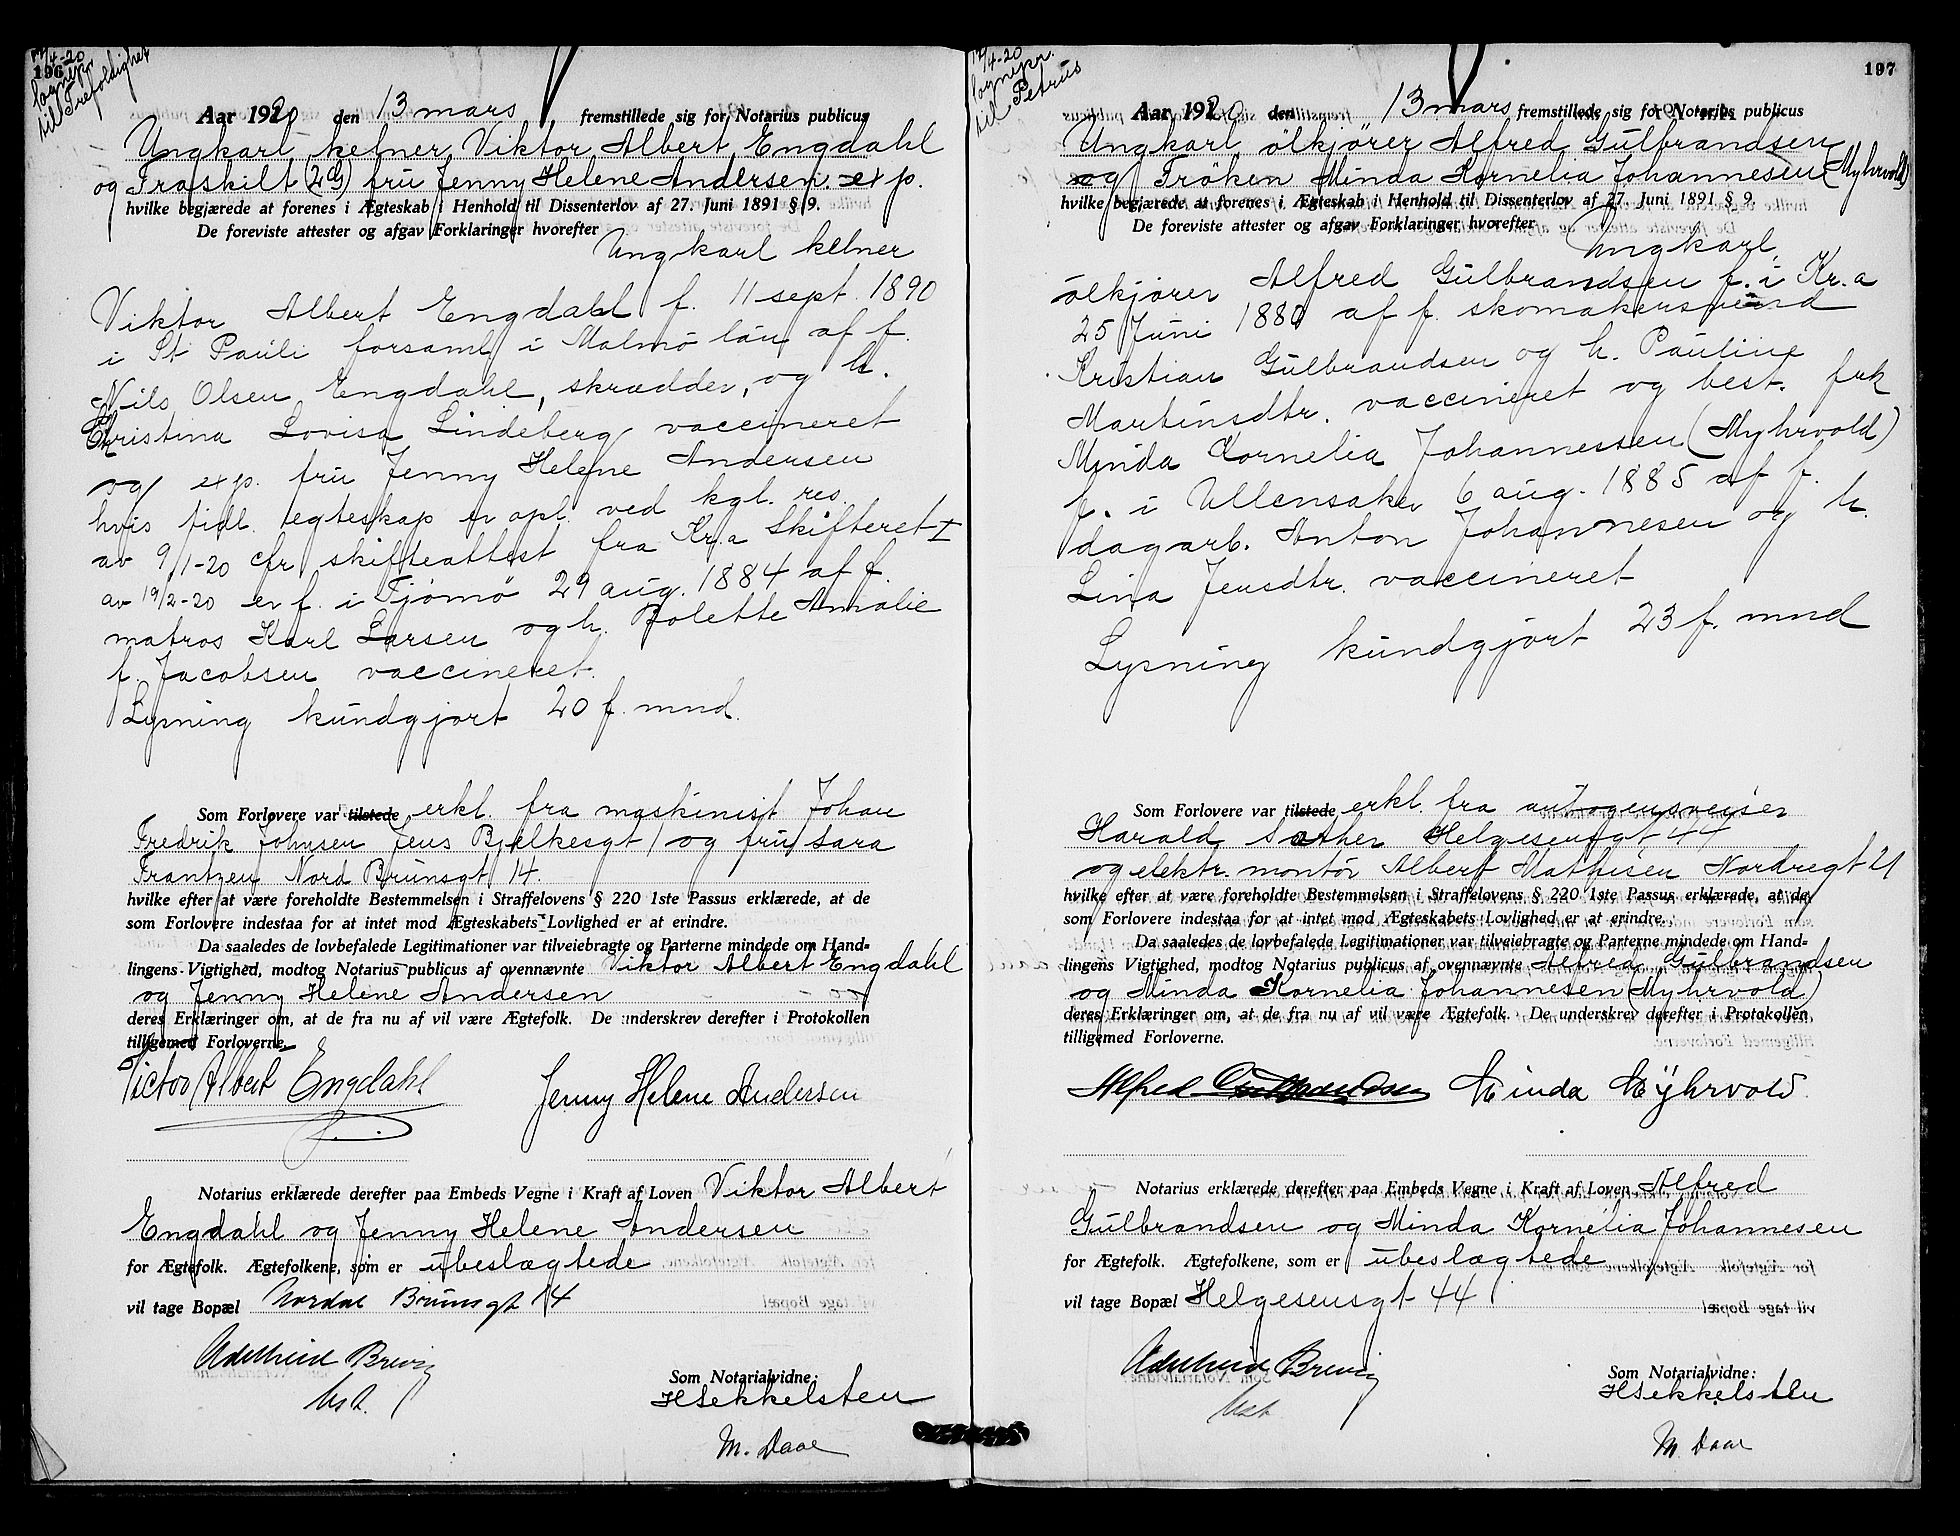 196
/4-20
sognepr.
til Trefoldighet
Aar 1920 den 13 mars fremstillede sig for Notarius publicus
Ungkarl kelner Viktor Albert Engdahl
og Fraskilt (2G) fru Jenny Helene Andersen. exp.
hvilke begjærede at forenes i Ægteskab i Henhold til Dissenterlov af 27. Juni 1891 § 9.
De foreviste attester og afgav Forklaringer hvorefter
Ungkarl kelner
Viktor Albert Engdahl f. 11 sept. 1890
i St Pauli forsaml i Malmö län af f.
Nils Olsen Engdahl, skrædder, og h.
Christina Lovisa Lindeberg vaccineret
og exp. fru Jenny Helene Andersen
hvis tidl. egteskap er opl. ved kgl. res.
av 9/1-20 cfr skifteattest fra Kr.a Skifteret I
av 19/2-20 er f. i Tjömö 29 aug. 1884 af f.
matros Karl Larsen og h. Bolette Amalie
f. Jacobsen vaccineret.
Lysning kundgjort 20 f. mnd.
Som Forlovere var tilstede erkl. fra maskinist Johan
Fredrik Johnsen Jens Bjelkesgt 1 og fru Sara
Frantzen Nord Brunsgt 14.
hvilke efter at være foreholdte Bestemmelsen i Straffelovens § 220 1ste Passus erklærede, at de
som Forlovere indestaa for at intet mod Ægteskabets Lovlighed er at erindre.
Da saaledes de lovbefalede Legitimationer var tilveiebragte og Parterne mindede om Hand-
lingens Vigtighed, modtog Notarius publicus af ovennævnte Viktor Albert Engdahl
og Jenny Helene Andersen
deres Erklæringer om, at de fra nu af vil være Ægtefolk. De underskrev derefter i Protokollen
tilligemed Forloverne.
Victor Albert Engdahl Jenny Helene Andersen
Notarius erklærede derefter paa Embeds Vegne i Kraft af Loven Viktor Albert
Engdahl og Jenny Helene Andersen
for Ægtefolk. Ægtefolkene, som er ubeslægtede
vil tage Bopæl Nordal Brunsgt 14
Adelheid Brevig
Som Notarialvidne:
HSekkelsten
M. Daae
197
/4-20
sognepr.
til Petrus
Aar 1920 den 13 mars fremstillede sig for Notarius publicus
Ungkarl ölkjörer Alfred Gulbrandsen
og Fröken Minda Kornelia Johannesen (Myhrvold)
hvilke begjærede at forenes i Ægteskab i Henhold til Dissenterlov af 27. Juni 1891 § 9.
De foreviste attester og afgav Forklaringer hvorefter
Ungkarl
ölkjörer Alfred Gulbrandsen f. i Kr.a
25 Juni 1880 af f. skomakersvend
Kristian Gulbrandsen og h. Pauline
Martinsdtr. vaccineret og best. frk
Minda Kornelia Johannessen (Myhrvold)
f. i Ullensaker 6 aug. 1885 af f.
dagarb. Anton Johannesen og h.
Lina Jensdtr. vaccineret
Lysning kundgjort 23 f. mnd
Som Forlovere var tilstede erkl. fra autogensveiser
Harald Sæther Helgesensgt 44
og elektr. montör Albert Mathisen Nordregt 21
hvilke efter at være foreholdte Bestemmelsen i Straffelovens § 220 1ste Passus erklærede, at de
som Forlovere indestaa for at intet mod Ægteskabets Lovlighed er at erindre.
Da saaledes de lovbefalede Legitimationer var tilveiebragte og Parterne mindede om Hand-
lingens Vigtighed, modtog Notarius publicus af ovennævnte Alfred Gulbrandsen
og Minda Kornelia Johannesen (Myhrvold)
deres Erklæringer om, at de fra nu af vil være Ægtefolk. De underskrev derefter i Protokollen
tilligemed Forloverne.
Alfred Gulbrandsen Minda Myhrvold.
Notarius erklærede derefter paa Embeds Vegne i Kraft af Loven Alfred
Gulbrandsen og Minda Kornelia Johannesen
for Ægtefolk. Ægtefolkene, som er ubeslægtede
vil tage Bopæl Helgesensgt 44
Adelheid Brevig
Som Notarialvidne:
HSekkelsten
M. Daae